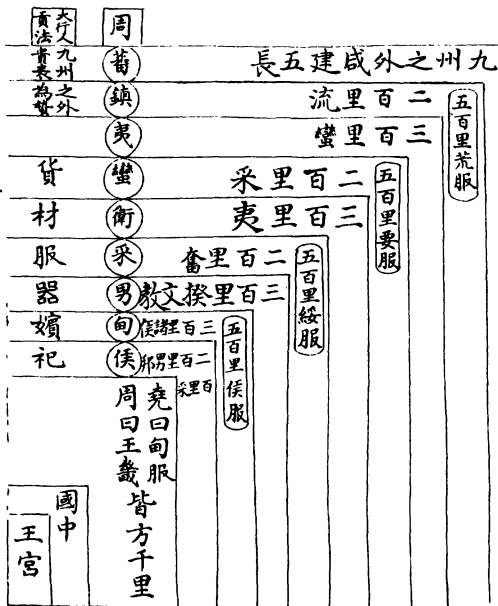 九州之外咸建五長
五百里荒服
二百里流
三百里蠻
五百里要服
二百里采
三百里夷
五百里綏服
二百里奮
三百里揆文教
五百里侯服
三百里諸侯
二百里男邦
百里采
堯曰甸服
周曰王畿
皆方千里
國中
王宮
周
蕃
鎮
夷
蠻
衛
采
男
甸
侯
大行人
貢法
九州之外
貴為
貨
材
服
器
嬪
祀